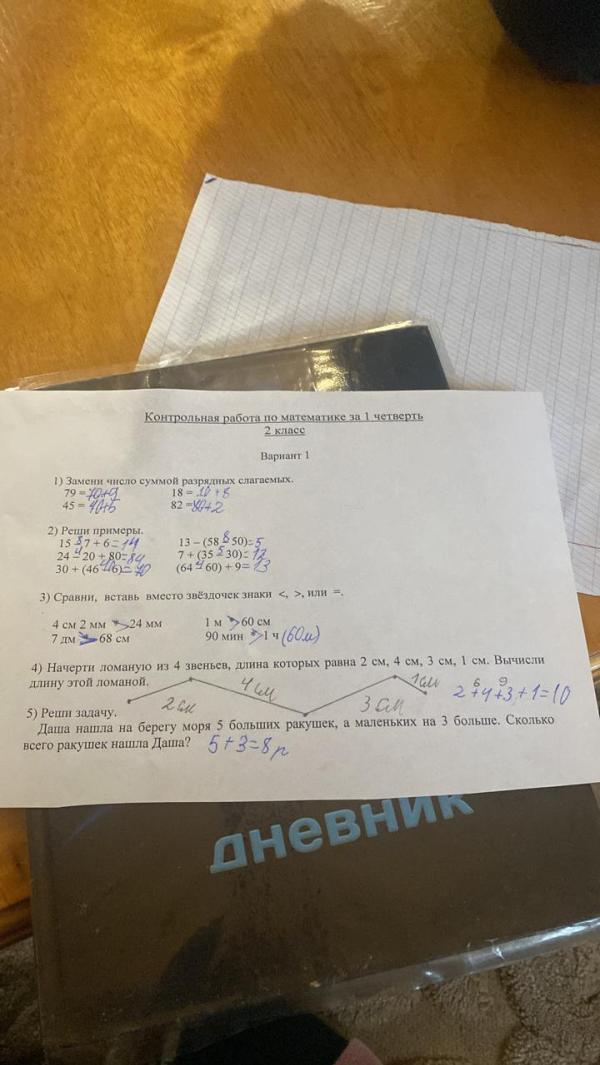 Контрольная работа по математике за 1 четверть
2 класс
Вариант 1
1) Замени число суммой разрядных слагаемых.
79 = 70+9 18 = 10+8
45 = 40+5 82 = 80+2
2) Реши примеры.
15 – 7 + 6 = 14 13 – (58 – 50) = 5
24 – 20 + 80 = 84 7 + (35 – 30) = 12
30 + (46 – 6) = 70 (64 – 60) + 9 = 13
3) Сравни, вставь вместо звёздочек знаки <, >, или =.
4 см 2 мм > 24 мм 1 м > 60 см
7 дм > 68 см 90 мин > 1 ч (60м)
4) Начерти ломаную из 4 звеньев, длина которых равна 2 см, 4 см, 3 см, 1 см. Вычисли
длину этой ломаной.
2 см 4 см 3 см 1 см 2+4+3+1=10
6 9
5) Реши задачу.
Даша нашла на берегу моря 5 больших ракушек, а маленьких на 3 больше. Сколько
всего ракушек нашла Даша? 5+3=8 р
дневник